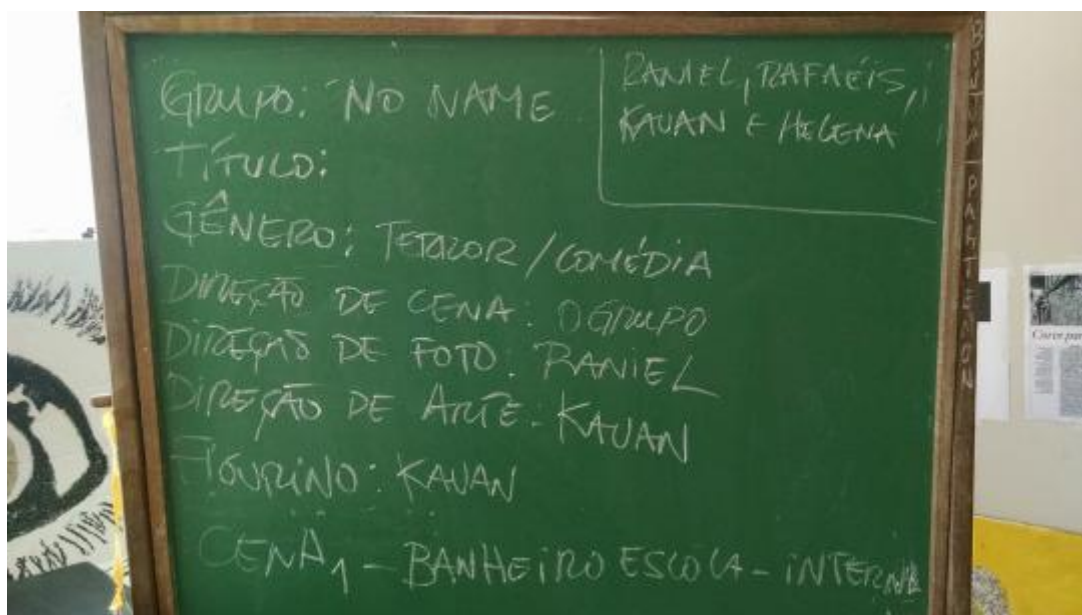 GRUPO: NO NAME
RANIEL, RAFAÉIS,
KAUAN E HELENA
TÍTULO:
GÊNERO: TERROR/COMÉDIA
DIREÇÃO DE CENA: O GRUPO
DIREÇÃO DE FOTO: RANIEL
DIREÇÃO DE ARTE - KAUAN
FIGURINO: KAUAN
CENA 1 - BANHEIRO ESCOLA - INTERNA